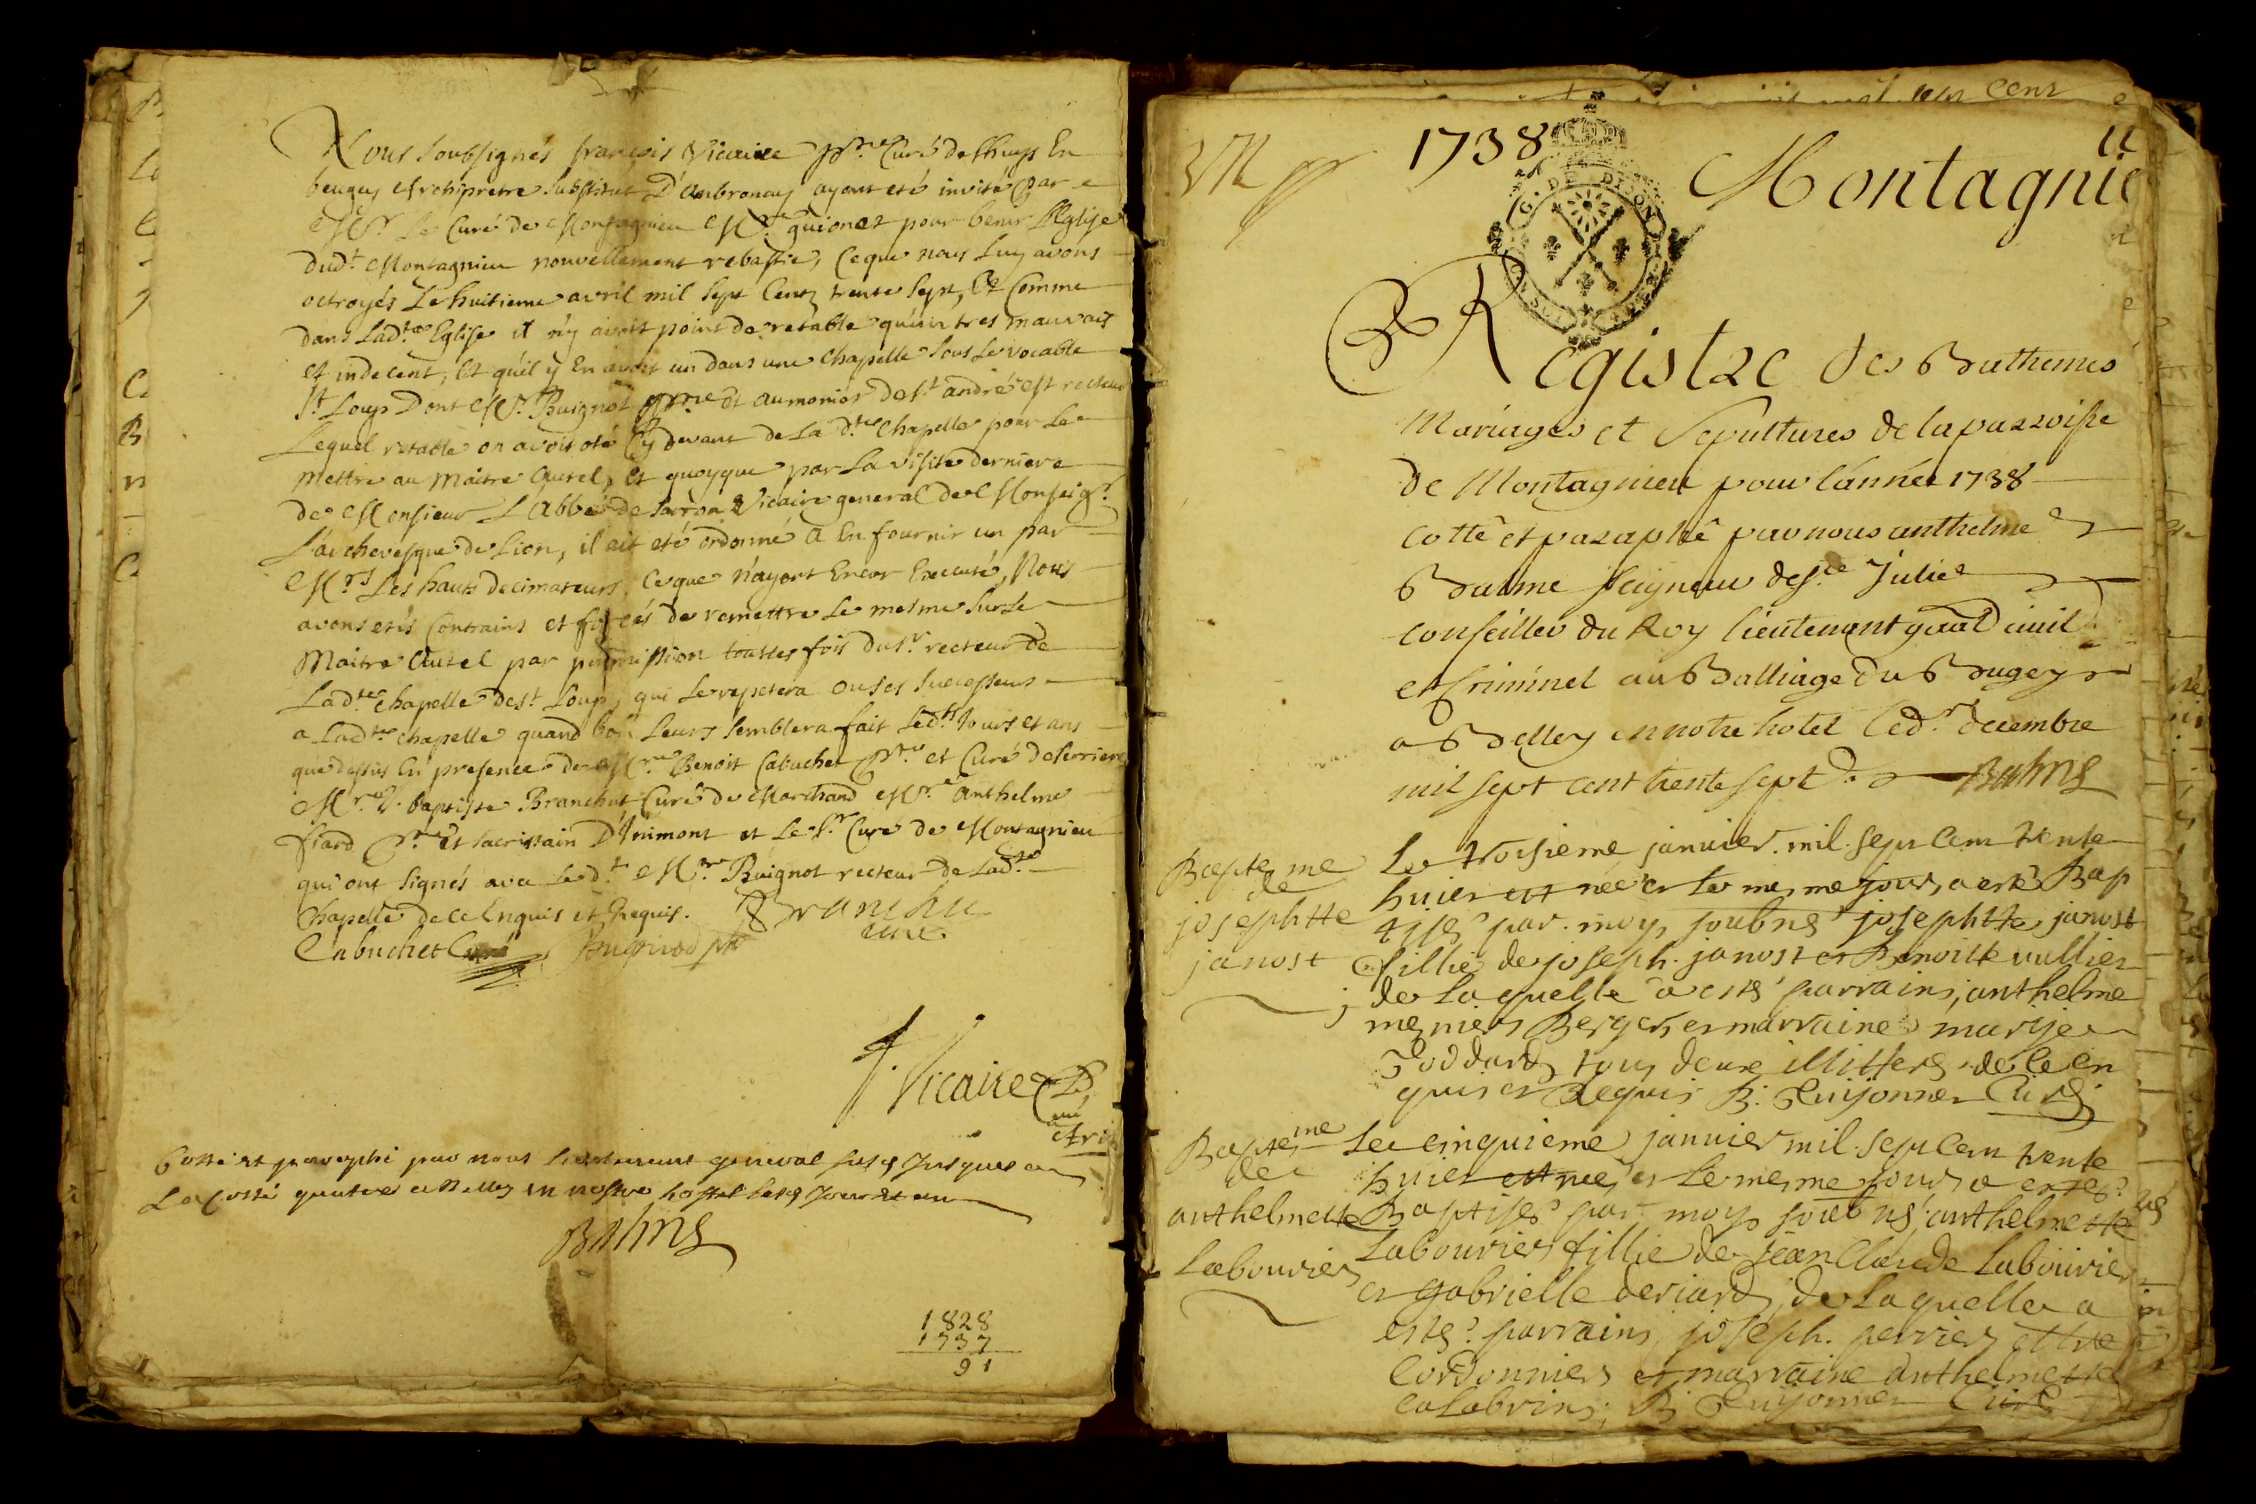 Nous soubsignés françois Vicaire Ptre Curé de Lhuys En
beugey Archiprêtre substitut D'ambronay ayant eté invité par
Mr. Le Curé de Montagnieu Mr. guionet pour benir L'Eglise
dudt Montagnieu nouvellement rebastie, Ce que nous Luy avons
octroyés Le huitieme avril mil sept Centz trente sept, Et Comme
dans Ladte Eglise il n'y avoit point de retable qu'un tres mauvais
et indecent, Et qu'il y En avoit un dans une chapelle sous Le vocable
St Loup Dont Mr. Buignot et aumonier de St andré est recteur
Lequel retable on avoit oté Cy devant de La dte Chapelle pour Le
mettre au Maitre autel, Et quoyque par La visite derniere
de Monsieur L'Abbé de Vicaire general de Monseigr
L'archevesque de Lion, il ait eté ordonné a En fournir un par
Mrs Les hauts decimateurs, Ce que n'ayant Encor Executé, Nous
avons etés Contrains et forcés de remettre Le mesme sur Le
Maitre Autel par permission touttes fois du Sr. recteur de
Ladte chapelle de St Loup, qui Le repetera ou ses successeurs
a Ladte chapelle quand bon Leurs semblera fait Lesdts Jours et ans
que dessus En presence de Mre Benoit Cabuchet Ptre et Curé de Serriere
Mre J. baptiste Branchut Curé de Marchand Mre Anthelme
fiard Ptre et sacristain D'Inimont et Le Sr. Curé de Montagnieu
qui ont signés avec Ledt Mre Buignot recteur de Ladte
Chapelle de ce Enquis et Requis. Branchu
Cabuchet Curé curé
f. Vicaire
Cotté et paraphé par nous Lieutenant general jusques a
La Cotte quatre a Belley en nostre hostel Jour et an
Balme
1828
1737
91
1738
G. DE DIJON
Montagnie
Registre des Bathemes
Mariages et Sepultures de la parroisse
de Montagnieu pour l'année 1738
cotté et paraphé par nous anthelme
Balme seigneur de Ste Julie
conseiller du Roy lieutenant gnal civil
et Criminel au Balliage du Bugey
a Belley en notre hotel Ledr. decembre
mil sept cent trente sept Balme
Bapteme
de
josephtte
janost
Le troisieme janvier mil sept cent trente
huict est née et Le mesme jour, a esté Bap
tisé par moy soubné josephtte janost
fillie de joseph janost et Benoitte vullier
de Laquelle a esté parrains, anthelme
megnier Berger et marraine marije
Goddard tous deux illitteré de ce en
quis et Requis B. Guijonnet Curé
Bapteme
de
anthelmette
Labourier
Le cinquieme janvier mil sept cent trente
huict est née, et Le mesme jour a esté
Baptisé par moy soubné anthelmette
Labourier fillie de jean Claude Labourier
et gabrielle deriard, de Laquelle a
esté parrains, joseph perrier
Cordonnier et marraine anthelmette
Calabrin, B. Guijonnet Curé